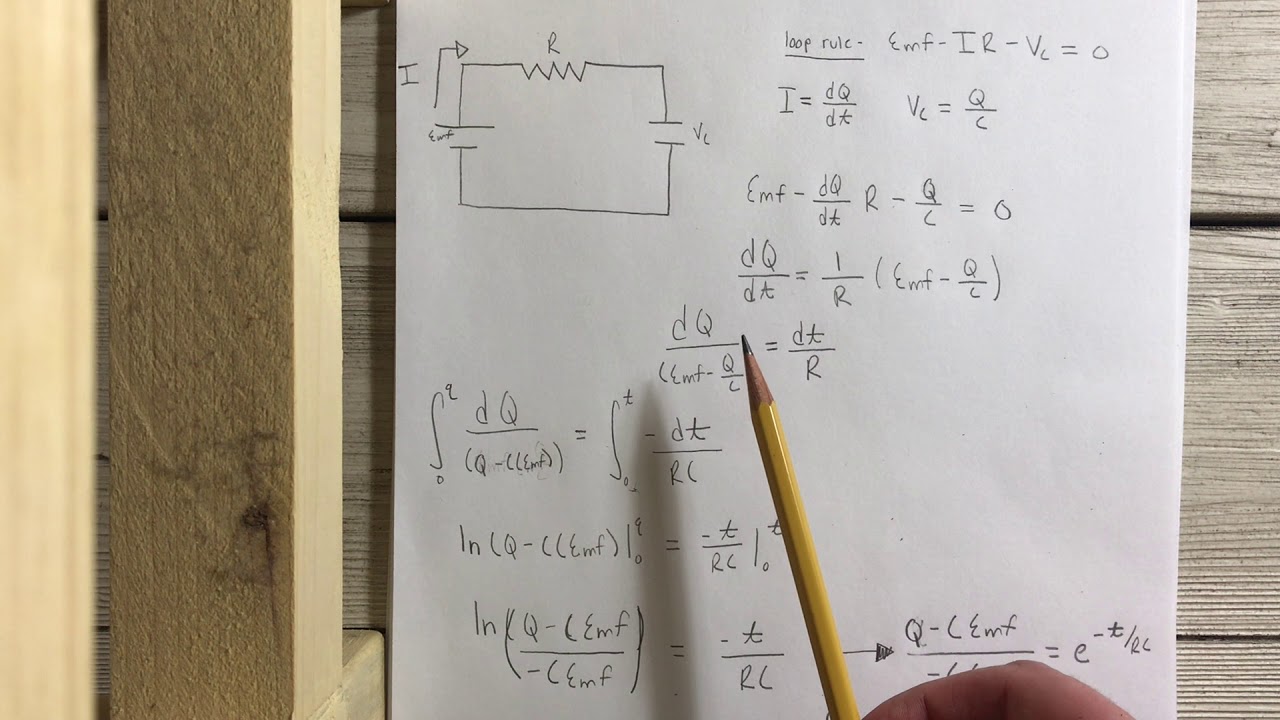 I
R
εmf
Vc
loop rule - εmf - IR - Vc = 0
I = dQ/dt    Vc = Q/C
εmf - dQ/dt R - Q/C = 0
dQ/dt = 1/R (εmf - Q/C)
dQ/(εmf - Q/C = dt/R
∫₀^q dQ/(Q - C(εmf)) = ∫₀^t -dt/RC
ln(Q - C(εmf)|₀^q = -t/RC |₀^t
ln(Q - Cεmf/-Cεmf) = -t/RC → Q - Cεmf/ = e^-t/RC